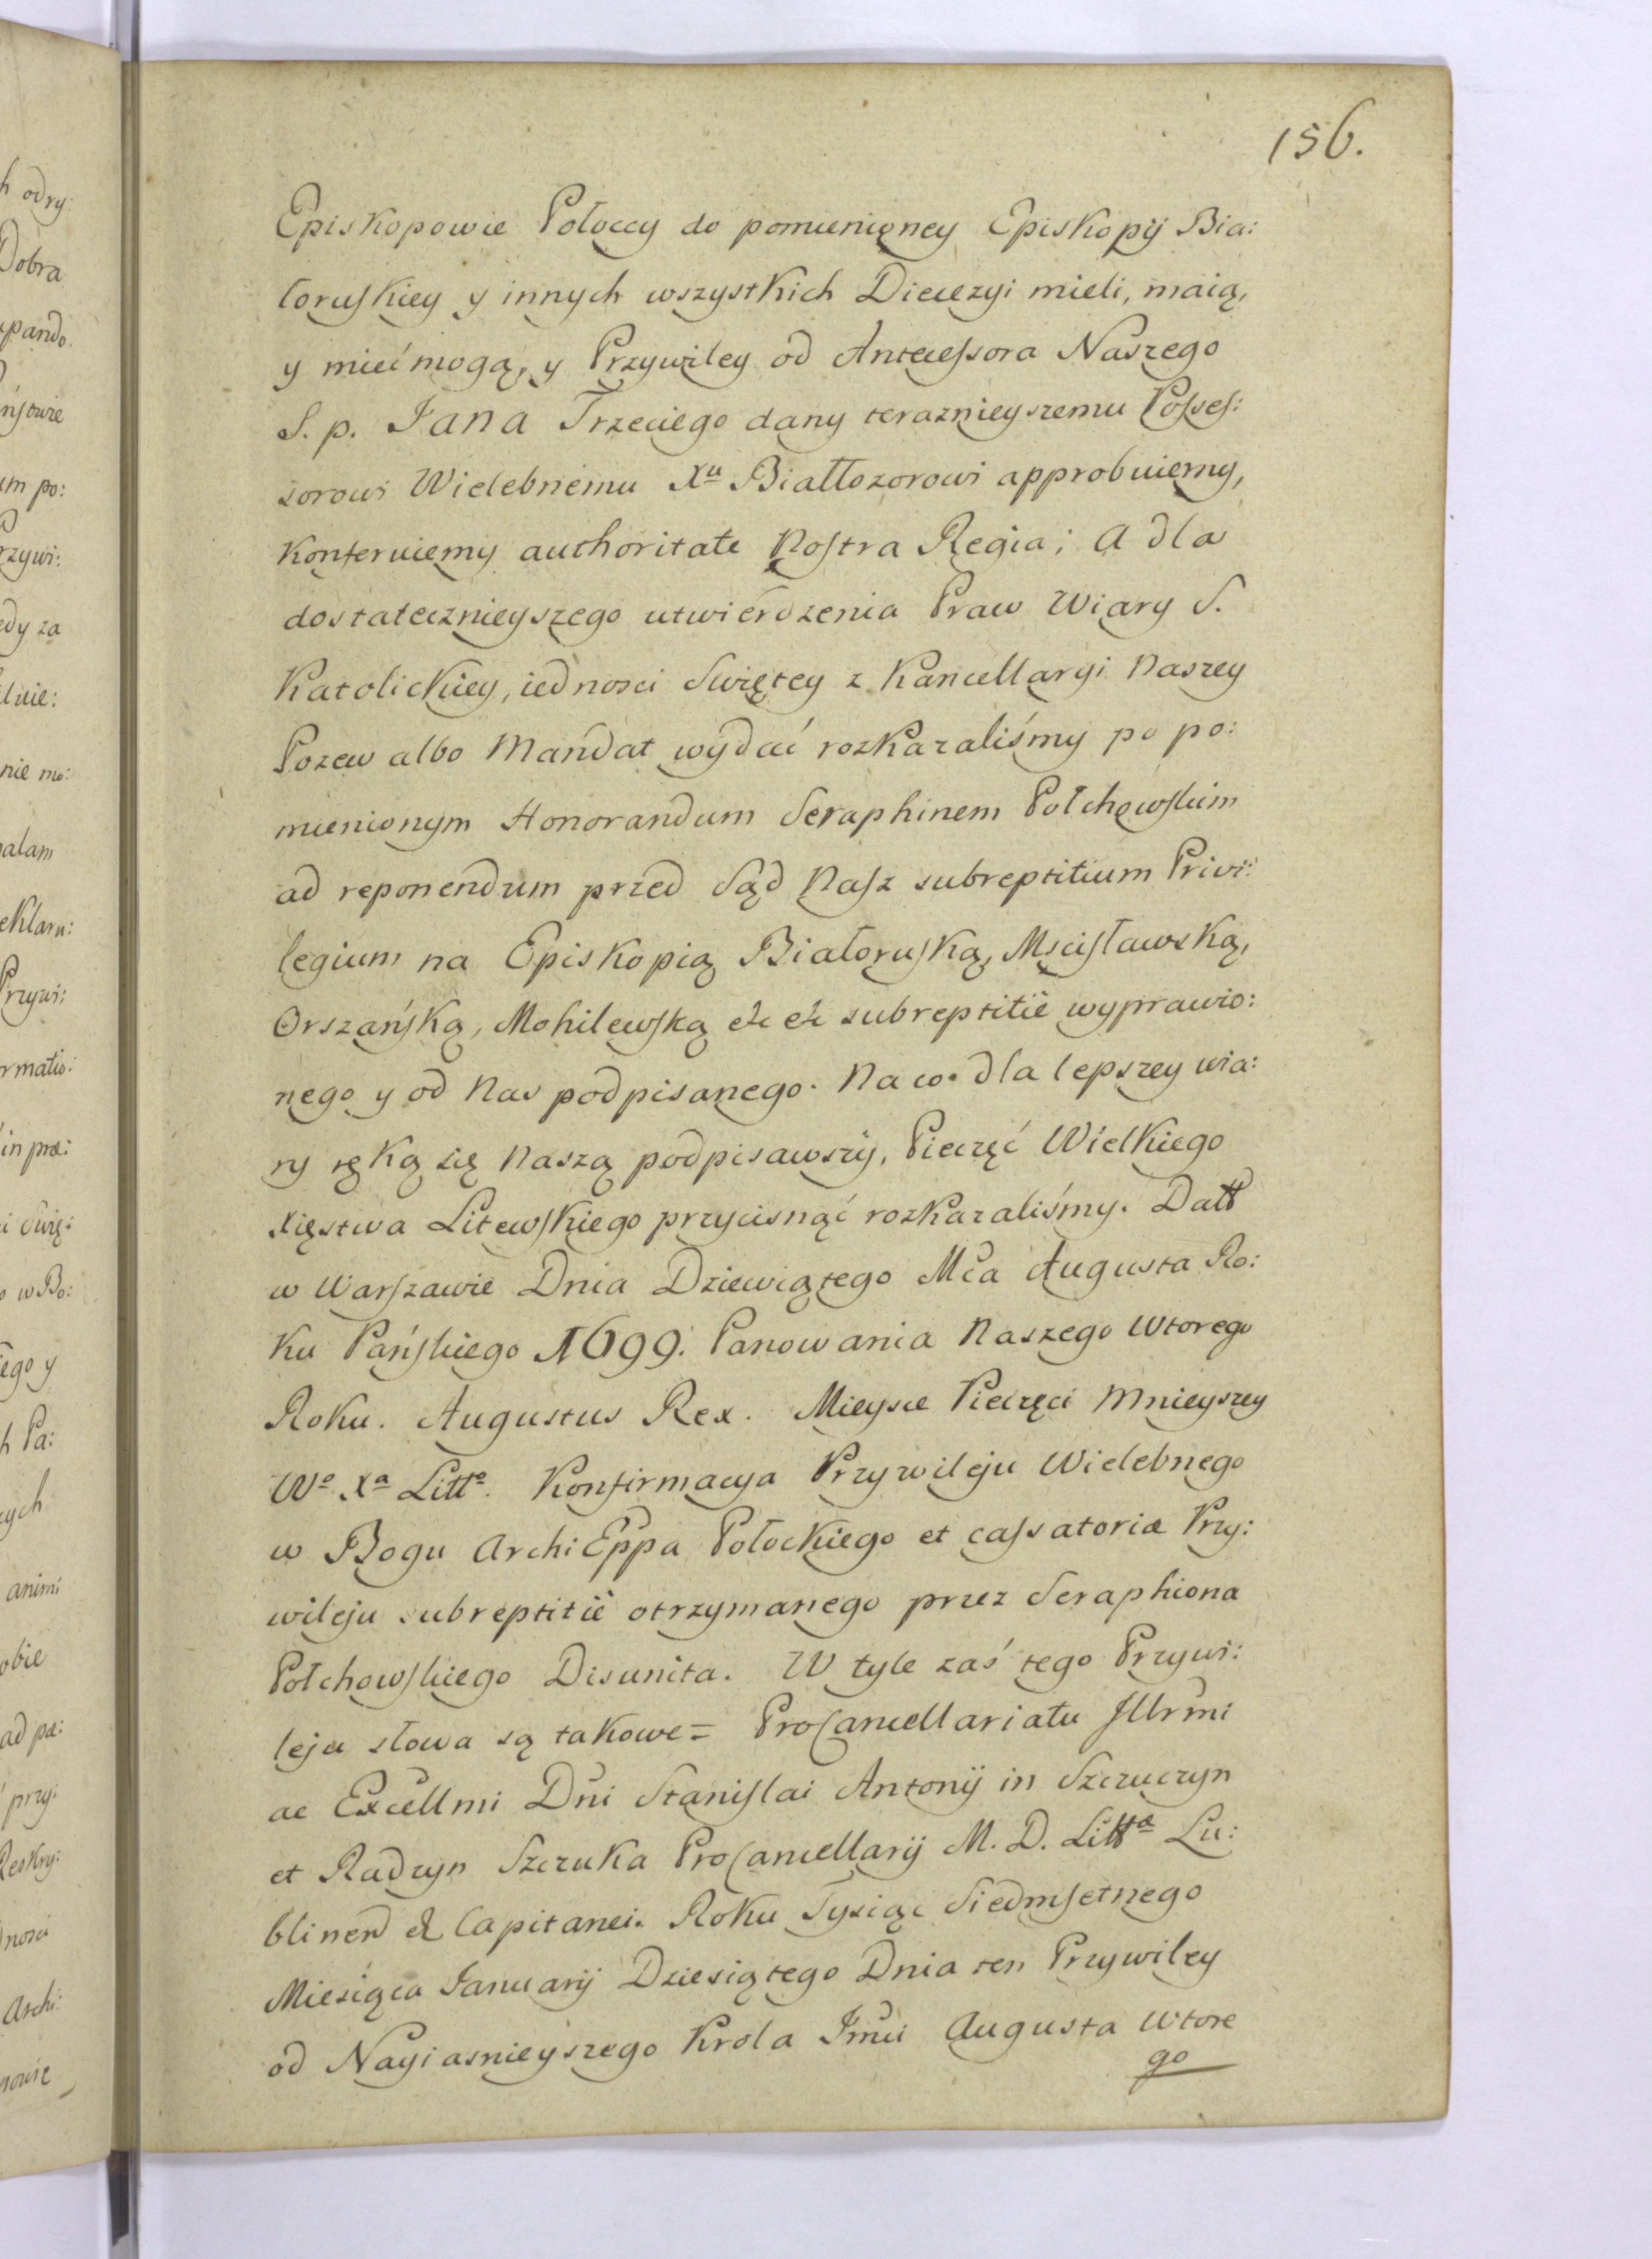 156.
Episkopowie Połoccy do pomienioney Episkopij Bia:
łoruskiey y innych wszystkich Diecezyi mieli, maią,
y mieć mogą, y Przywiley od Antecessora Naszego
S. p. Jana Trzeciego dany teraznieyszemu Posses:
sorowi Wielebnemu Xu Białłozorowi approbuiemy,
konferuiemy authoritate Nostra Regia; A dla
dostatecznieyszego utwierdzenia Praw Wiary S.
Katolickiey, iednosci Swiętey z Kancellaryi Naszey
Pozew albo Mandat wydać rozkazaliśmy po po:
mienionym Honorandum Seraphinem Połchowskim
ad reponendum przed Sąd Nasz subreptitium Privi:
legium na Episkopią Białoruską, Mscisławską,
Orszańską, Mohilewską &c &c subreptitiè wyprawio:
nego y od Nas podpisanego. Na co dla lepszey wia:
ry ręką się Naszą podpisawszy, Pieczęć Wielkiego
Xięstwa Litewskiego przycisnąć rozkazaliśmy. Datt
w Warszawie Dnia Dziewiątego Mca Augusta Ro:
ku Pańskiego 1699. Panowania Naszego Wtorego
Roku. Augustus Rex. Mieysce Pieczęci Mnieyszey
Wo Xa Litto. Konfirmacya Przywileju Wielebnego
w Bogu ArchiEppa Połockiego et cassatoriæ Przy:
wileju subreptitiè otrzymanego przez Seraphiona
Połchowskiego Disunita. W tyle zaś tego Przywi:
leju słowa są takowe = ProCancellariatu Jllrmi
ac Excellmi Dni Stanislai Antonij in Szczuczyn
et Radzyn Szczuka ProCancellarij M. D. Littæ Lu:
blinen & Capitanei. Roku Tysiąc Siedmsetnego
Miesiąca Januarij Dziesiątego Dnia ten Przywiley
od Nayiasnieyszego Krola Jmci Augusta Wtore
go